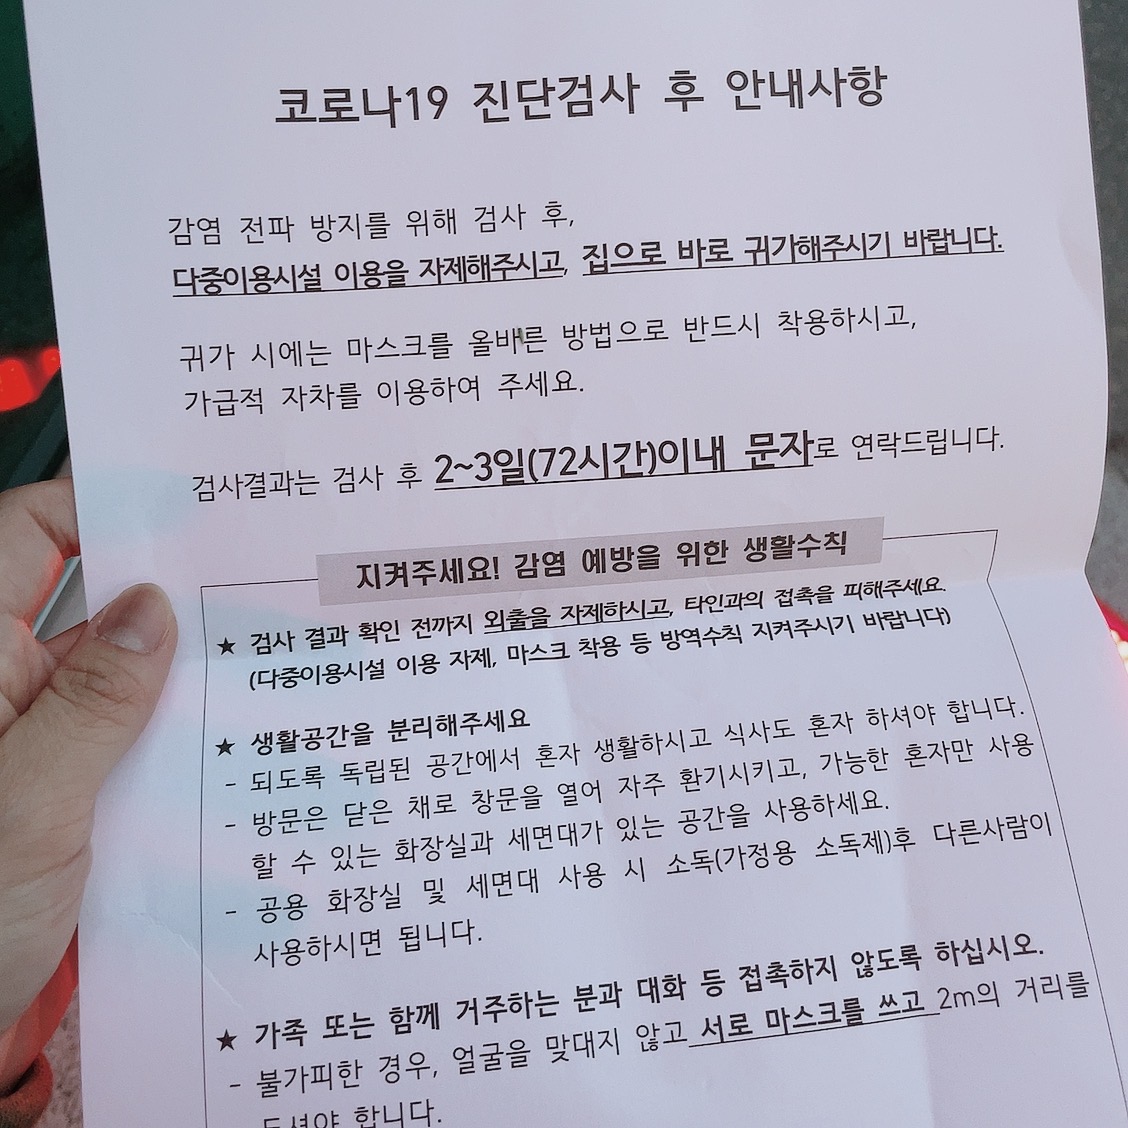 코로나19 진단검사 후 안내사항
감염 전파 방지를 위해 검사 후,
다중이용시설 이용을 자제해주시고, 집으로 바로 귀가해주시기 바랍니다.
귀가 시에는 마스크를 올바른 방법으로 반드시 착용하시고,
가급적 자차를 이용하여 주세요.
검사결과는 검사 후 2~3일(72시간)이내 문자로 연락드립니다.
지켜주세요! 감염 예방을 위한 생활수칙
★ 검사 결과 확인 전까지 외출을 자제하시고, 타인과의 접촉을 피해주세요.
(다중이용시설 이용 자제, 마스크 착용 등 방역수칙 지켜주시기 바랍니다)
★ 생활공간을 분리해주세요
- 되도록 독립된 공간에서 혼자 생활하시고 식사도 혼자 하셔야 합니다.
- 방문은 닫은 채로 창문을 열어 자주 환기시키고, 가능한 혼자만 사용
할 수 있는 화장실과 세면대가 있는 공간을 사용하세요.
- 공용 화장실 및 세면대 사용 시 소독(가정용 소독제)후 다른사람이
사용하시면 됩니다.
★ 가족 또는 함께 거주하는 분과 대화 등 접촉하지 않도록 하십시오.
- 불가피한 경우, 얼굴을 맞대지 않고 서로 마스크를 쓰고 2m의 거리를
두셔야 합니다.